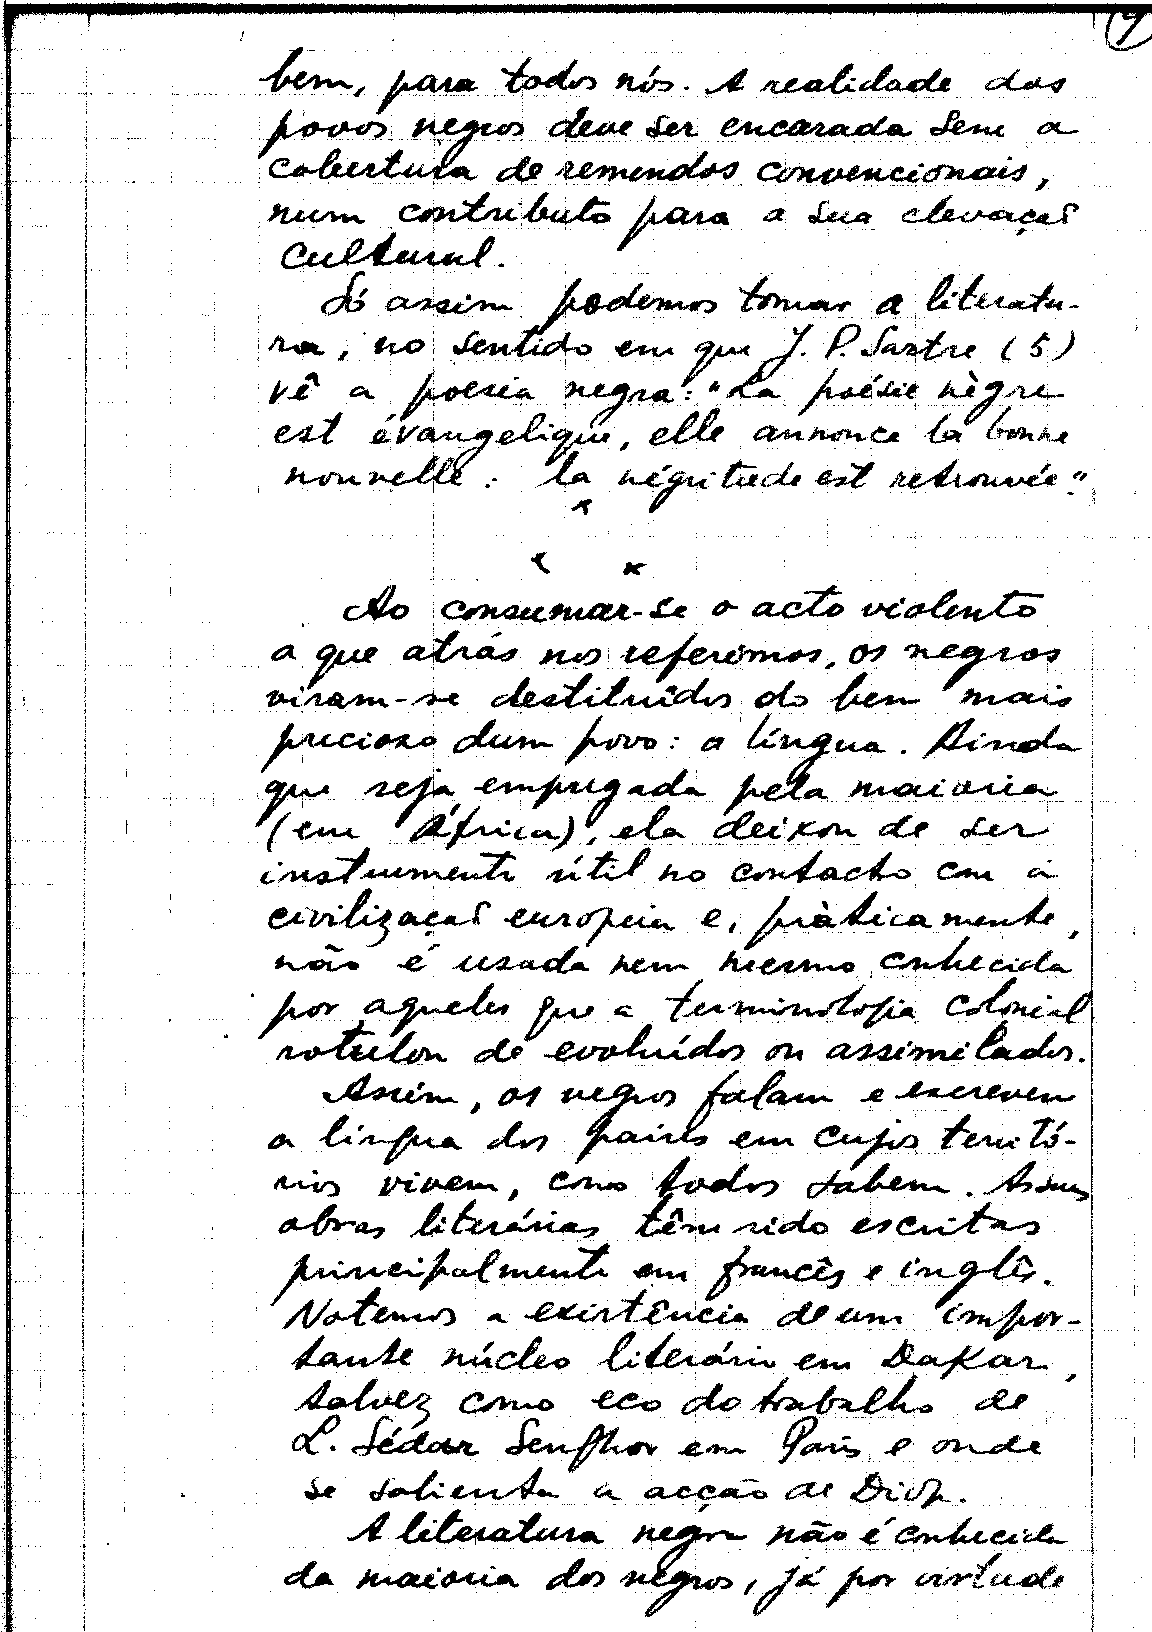 bem, para todos nós. A realidade dos
povos negros deve ser encarada sem a
cobertura de remendos convencionais,
num contributo para a sua elevação
cultural.
Só assim podemos tomar a literatu-
ra, no sentido em que J. P. Sartre (5)
vê a poesia negra: "La poésie nègre
est évangelique, elle annonce la bonne
nouvelle: la négritude est retrouvée".
x
x x
Ao consumar-se o acto violento
a que atrás nos referimos, os negros
viram-se destituídos do bem mais
precioso dum povo: a língua. Ainda
que seja empregada pela maioria
(em África), ela deixou de ser
instrumento útil no contacto com a
civilização europeia e, pràticamente,
não é usada nem mesmo conhecida
por aqueles que a terminologia colonial
rotulou de evoluídos ou assimilados.
Assim, os negros falam e escrevem
a língua dos países em cujos territó-
rios vivem, como todos sabem. As suas
obras literárias têm sido escritas
principalmente em francês e inglês.
Notemos a existência de um impor-
tante núcleo literário em Dakar,
talvez como eco do trabalho de
L. Sédar Senghor em Paris e onde
se salienta a acção de Diop.
A literatura negra não é conhecida
da maioria dos negros, já por virtude